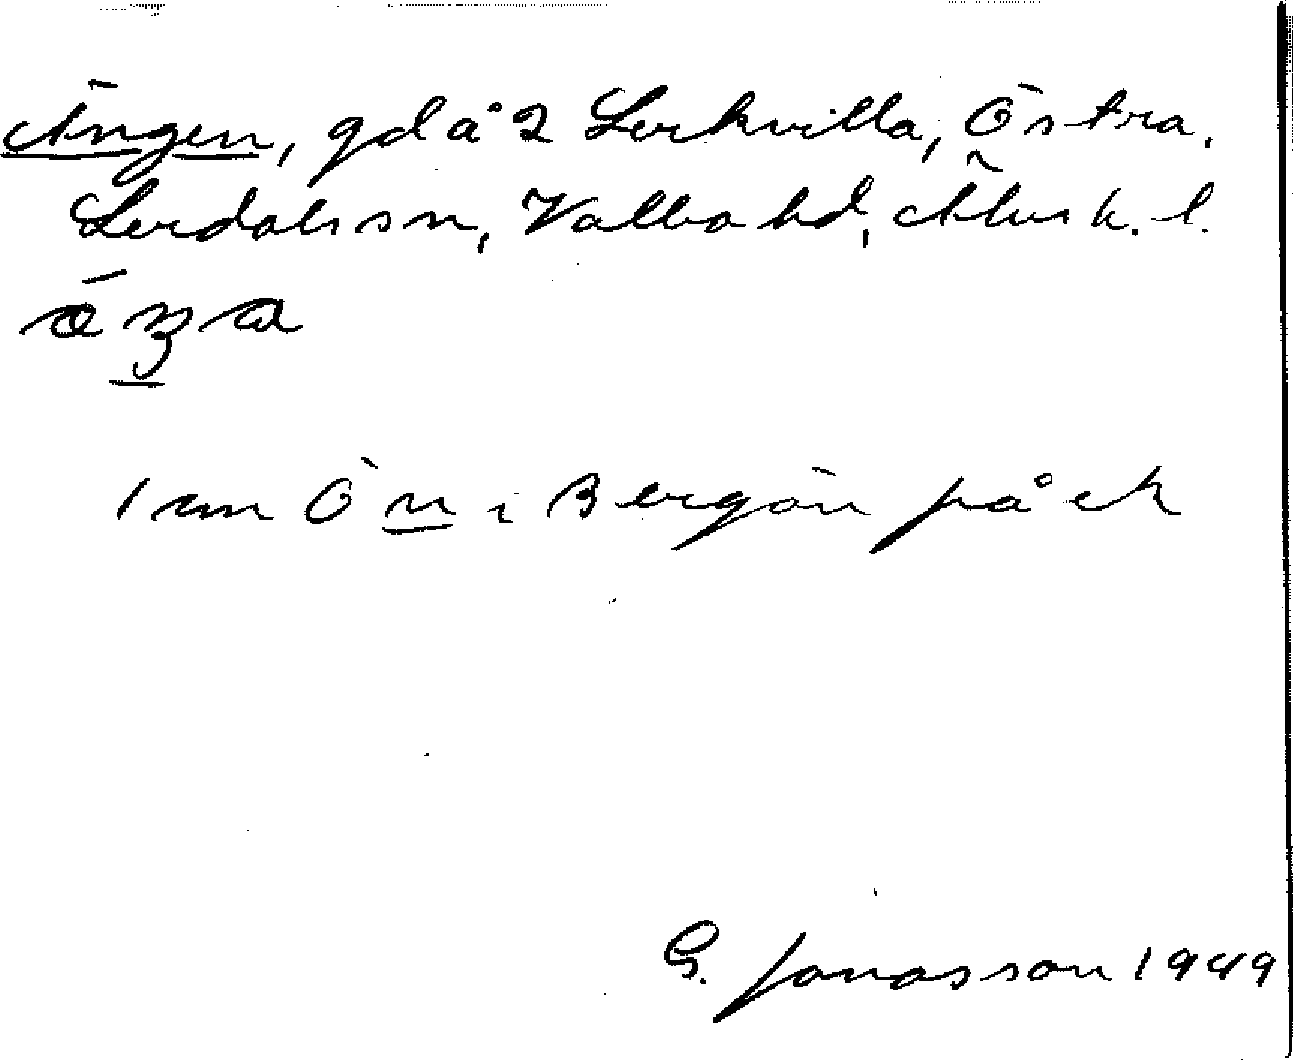 Ängen, gd å 2 Lerkvilla, Östra.
Lerdals sn, Valbo hd, Älvsb. l.
1 sm Ön i Bergön på ek
G. Jonasson 1949